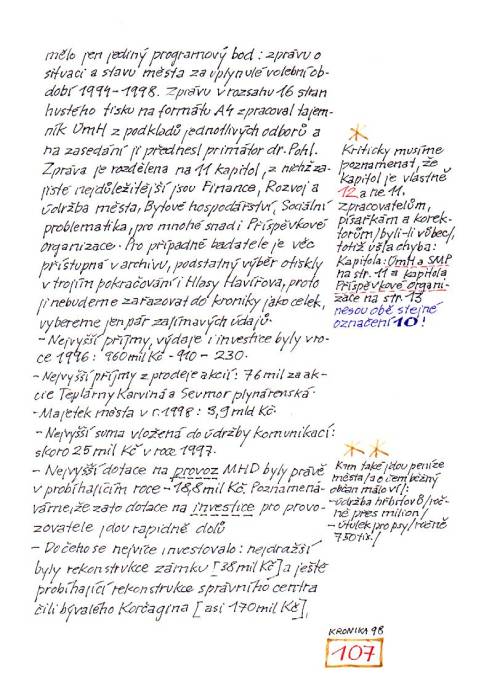 mělo jen jediný programový bod: zprávu o
situaci a stavu města za uplynulé volební ob-
dobí 1994-1998. Zprávu v rozsahu 16 stran
hustého tisku na formátu A4 zpracoval tajem-
ník ÚmH z podkladů jednotlivých odborů a
na zasedání ji přednesl primátor dr. Pohl.
Zpráva je rozdělena na 11 kapitol, z nichž za-
jisté nejdůležitější jsou Finance, Rozvoj a
údržba města, Bytové hospodářství, Sociální
problematika, pro mnohé snad i Příspěvkové
organizace. Pro případné badatele je věc
přístupná v archivu, podstatný výběr otiskly
v trojím pokračování i Hlasy Havířova, proto
ji nebudeme zařazovat do kroniky jako celek,
vybereme jen pár zajímavých údajů.
- Nejvyšší příjmy, výdaje i investice byly v ro-
ce 1996: 960 mil Kč - 910 - 230.
- Nejvyšší příjmy z prodeje akcií: 76 mil za ak-
cie Teplárny Karviná a Sevmor plynárenská.
- Majetek města v r. 1998: 3,9 mld Kč.
- Nejvyšší suma vložená do údržby komunikací:
skoro 25 mil Kč v roce 1997.
- Nejvyšší dotace na provoz MHD byly právě
v probíhajícím roce - 18,8 mil Kč. Poznamená-
váme, že zato dotace na investice pro provo-
zovatele jdou rapidně dolů
- Do čeho se nejvíce investovalo: nejdražší
byly rekonstrukce zámku [38 mil Kč] a ještě
probíhající rekonstrukce správního centra
čili bývalého Korčagina [asi 170 mil Kč],
*
Kriticky musíme
poznamenat, že
kapitol je vlastně
12 a ne 11.
zpracovatelům,
písařkám a korek-
torům /byli-li vůbec/,
totiž ušla chyba:
Kapitola: ÚmH a SMP
na str. 11 a kapitola
Příspěvkové organi-
zace na str. 13
nesou obě stejné
označení 10!
**
Kam také jdou peníze
města /a o čem běžný
občan málo ví/:
- údržba hřbitovů /roč-
ně přes milion/
- útulek pro psy /ročně
750 tis./
KRONIKA 98
107